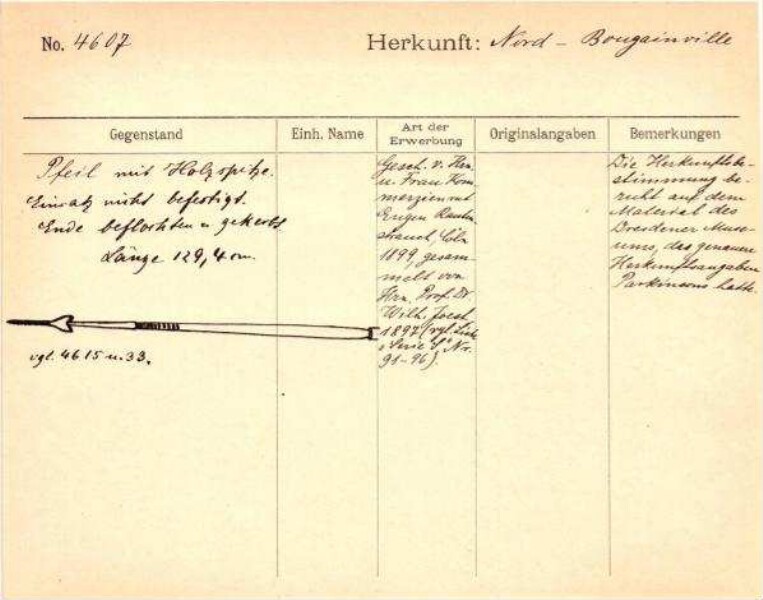 No. 4607
Herkunft: Nord - Bougainville
Gegenstand
Einh. Name
Art der Erwerbung
Originalangaben
Bemerkungen
Pfeil mit Holzspitze.
Einsatz nicht befestigt.
Ende beflochten u. gekerbt.
Länge 129,4 cm.
vgl. 4615 u. 33.
Gesch. v. Hrn.
u. Frau Kom-
merzienrat
Eugen Rauten-
strauch, Cöln
1899, gesam-
melt von
Hrn. Prof. Dr.
Wilh. Joest
1897 (vgl. Liste
"Serie S" Nr.
91-96).
Die Herkunftsbe-
stimmung be-
ruht auf dem
Material des
Dresdener Muse-
ums, das genauere
Herkunftsangaben
Parkinsons hatte.